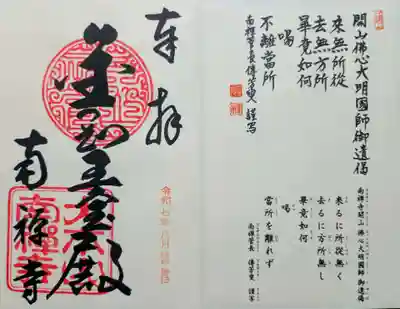 開山佛心大明國師御遺偈
來無所從
去無方所
畢竟如何
喝
不離當所
南禅管長傳芳叟 謹写
南禅寺開山 佛心大明國師 御遺偈
来るに所從無く
去るに方所無し
畢竟如何
喝
當所を離れず
南禅管長 傳芳叟 謹写
奉拝
金剛王寶殿
南禅寺
南禅寺